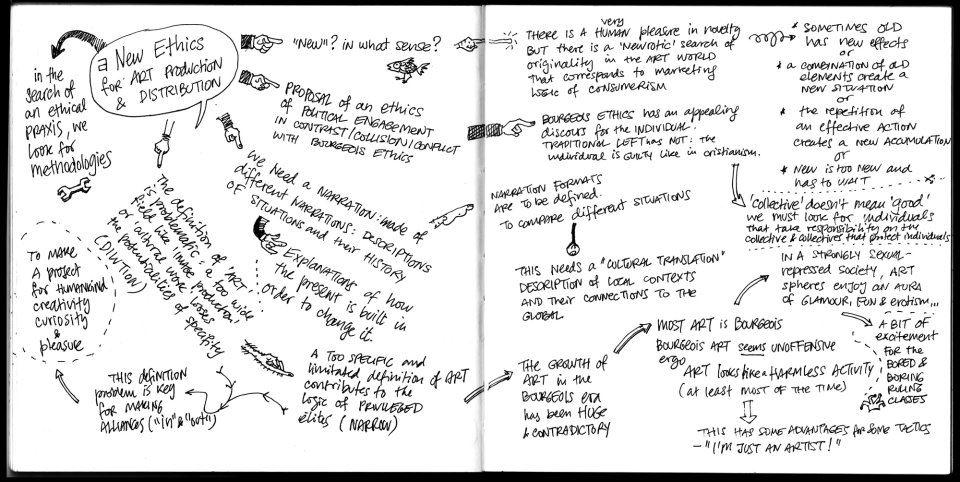 a New Ethics
for ART PRODUCTION
& DISTRIBUTION
in the
search of
an ethical
PRAXIS, we
look for
methodologies
"NEW"? in what sense?
PROPOSAL of an ethics
of POLITICAL ENGAGEMENT
IN CONTRAST/COLLISION/CONFLICT
WITH BOURGEOIS ETHICS
We need a NARRATION: made of
different NARRATIONS: DESCRIPTIONS
OF SITUATIONS and their HISTORY
Explanations of how
the present is built in
order to change it.
The definition of 'ART'
is problematic: a too wide
field like 'image production'
or 'cultural work' loses
the potentialities of specificity
(DILUTION)
To make
A project
for HUMANKIND
creativity
curiosity
&
pleasure
THIS DEFINITION
problem is key
FOR MAKING
ALLIANCES ("in" & "out")
A TOO SPECIFIC and
limitated definition of ART
contributes to the
logic of PRIVILEGED
élites (NARROW)
THERE IS A very HUMAN pleasure in novelty
BUT there is a 'NEUROTIC' search of
originality in the ART WORLD
that corresponds to marketing
LOGIC of CONSUMERISM
BOURGEOIS ETHICS has an appealing
discours for the INDIVIDUAL.
TRADITIONAL LEFT has NOT: the
individual is GUILTY like in cristianism.
NARRATION FORMATS
ARE TO BE defined.
TO COMPARE different SITUATIONS
THIS NEEDS A "CULTURAL TRANSLATION"
DESCRIPTION OF LOCAL CONTEXTS
AND their CONNECTIONS TO the
GLOBAL
THE GROWTH OF
ART in the
BOURGEOIS era
has been HUGE
& CONTRADICTORY
* SOMETIMES OLD
has new effects
or
* a COMBINATION of OLD
elements create a
NEW SITUATION
or
* the repetition of
an effective ACTION
creates a new ACCUMULATION
or
* NEW is too new and
has to WAIT
'Collective' doesn't mean 'good'
we must look for individuals
that take responsibility on the
collective & collectives that protect individuals
IN A STRONGLY SEXUAL-
repressed society, ART
spheres enjoy an AURA
of GLAMOUR, FUN & erotism...
MOST ART is BOURGEOIS
BOURGEOIS ART seems UNOFFENSIVE
ergo
ART looks like a HARMLESS ACTIVITY
(at least most of the time)
A BIT of
excitement
FOR the
BORED &
BORING
RULING
CLASSES
THIS HAS SOME ADVANTAGES for SOME TACTICS
– "I'M JUST AN ARTIST!"